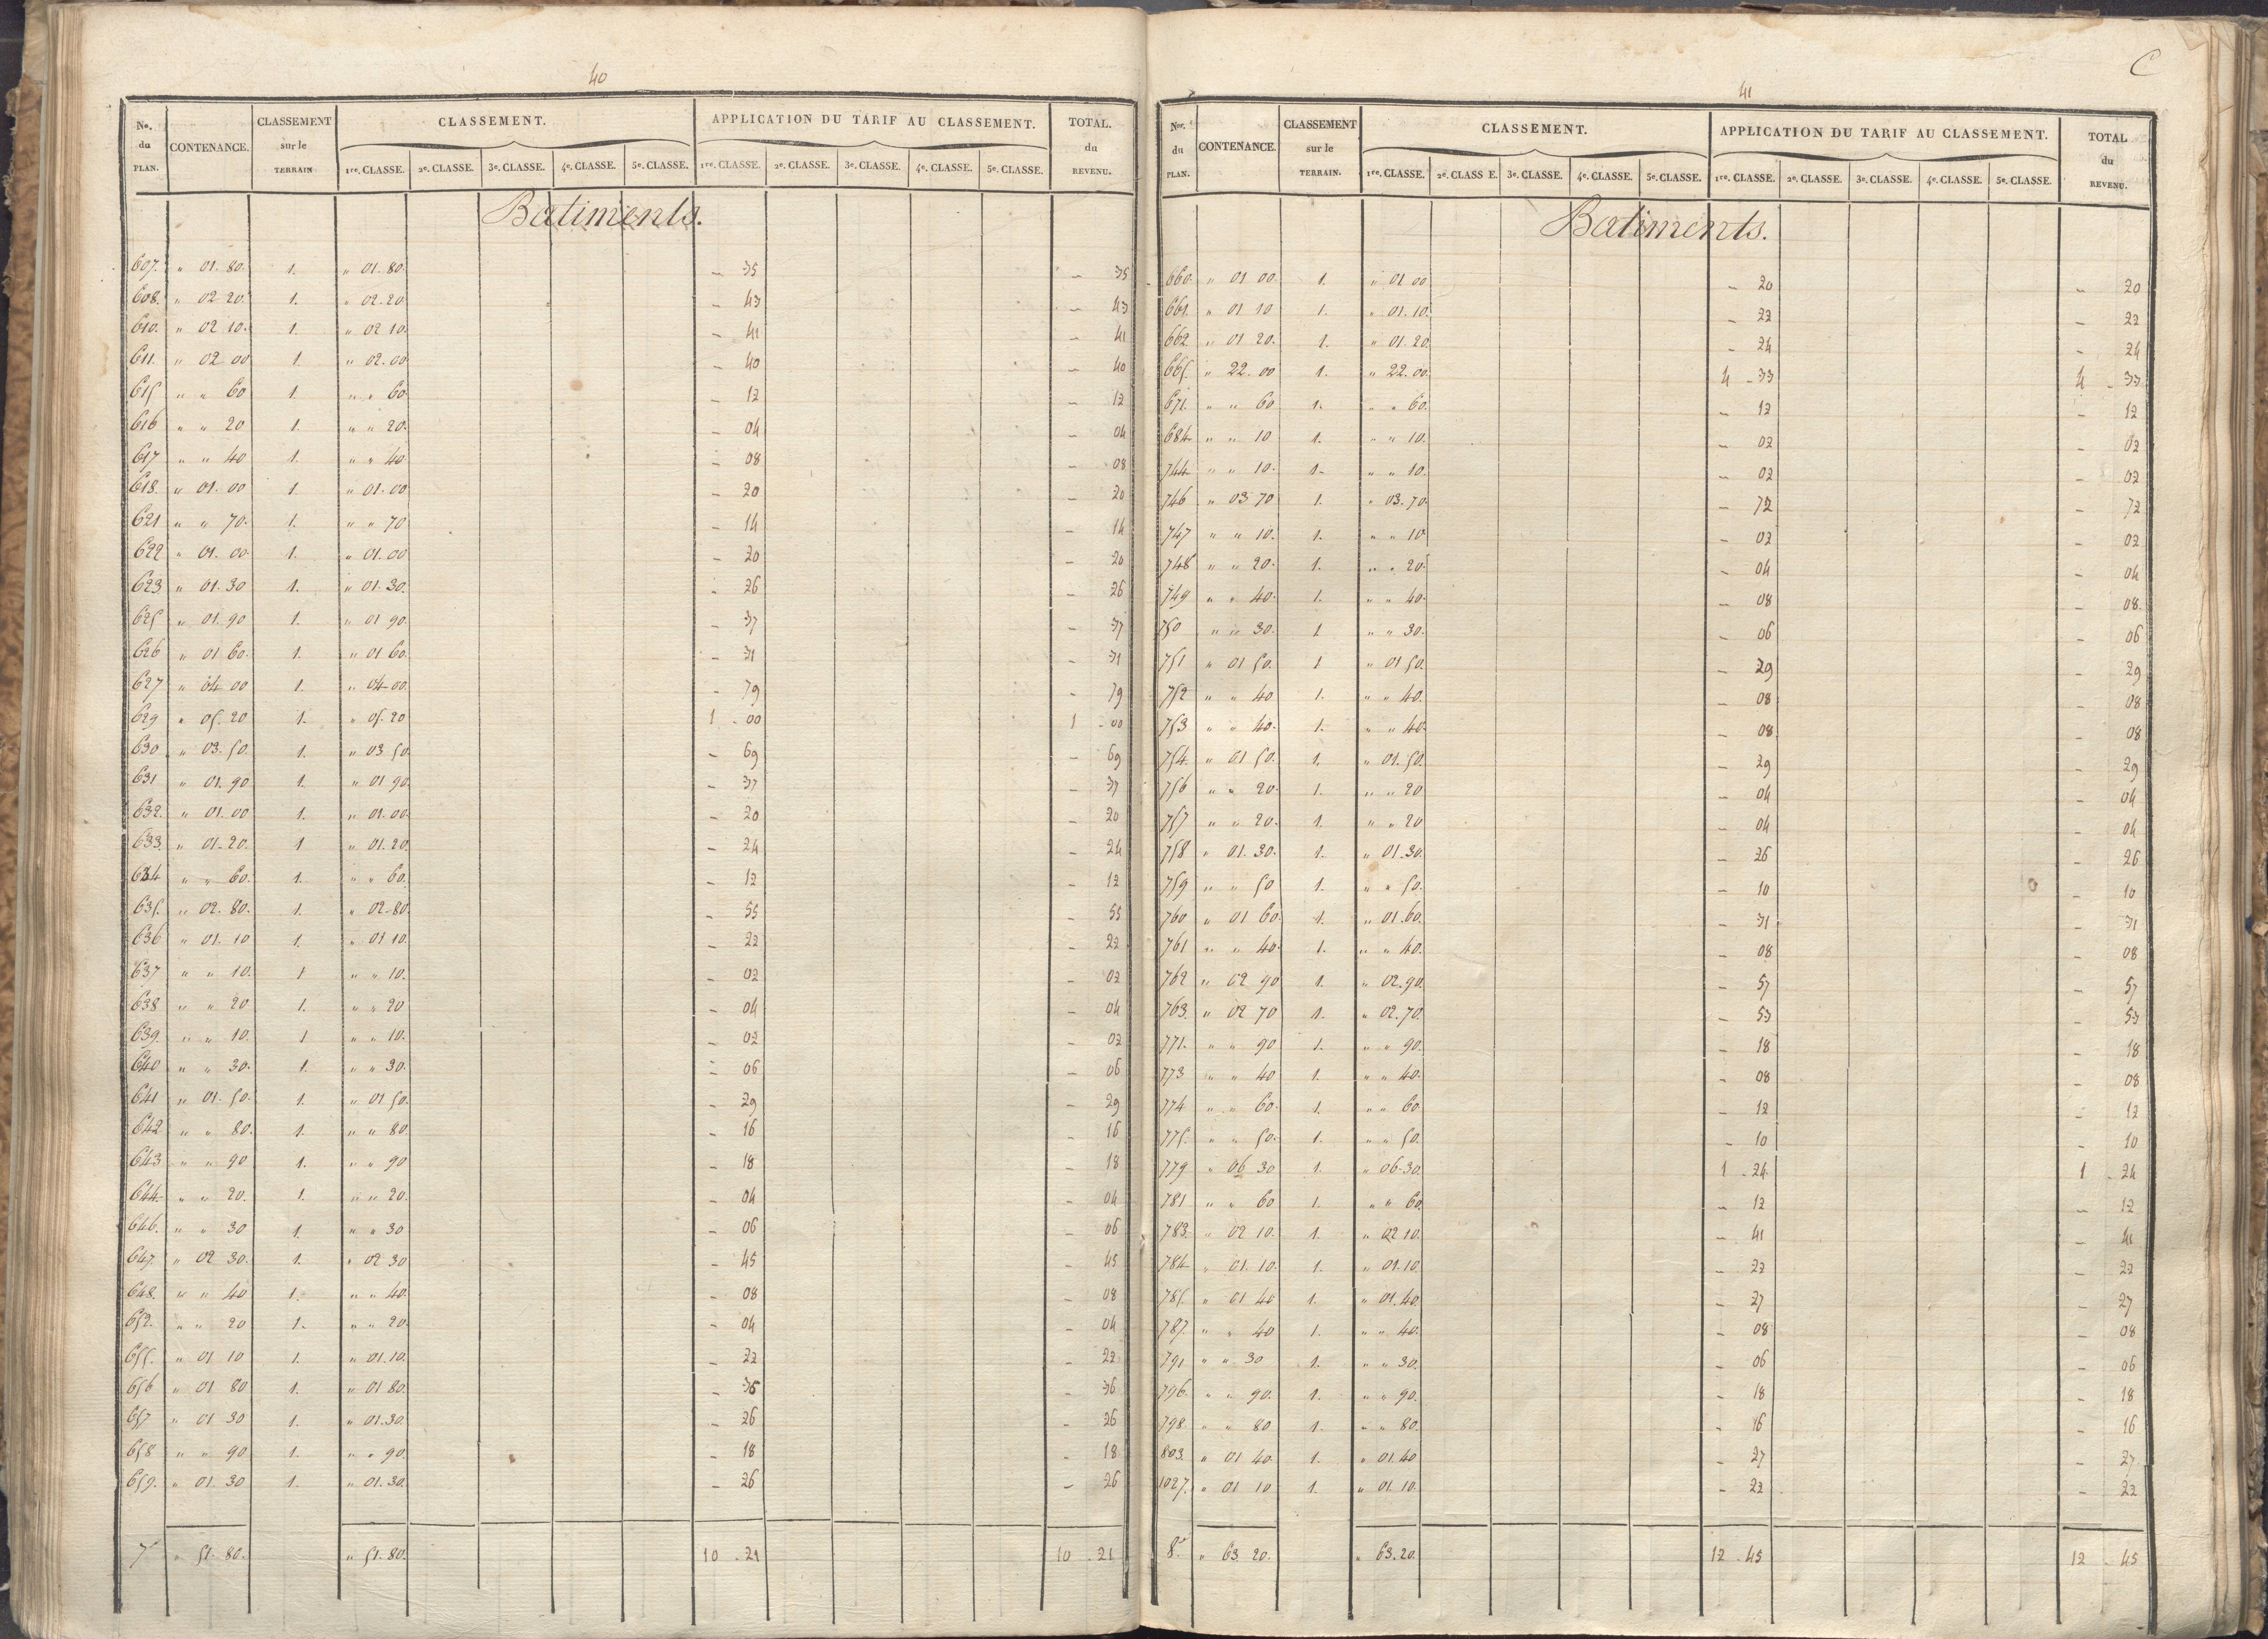 40
No. du PLAN. CONTENANCE. CLASSEMENT sur le TERRAIN CLASSEMENT. APPLICATION DU TARIF AU CLASSEMENT. TOTAL. du REVENU.
1re. CLASSE. 2e. CLASSE. 3e. CLASSE. 4e. CLASSE. 5e. CLASSE. 1re. CLASSE. 2e. CLASSE. 3e. CLASSE. 4e. CLASSE. 5e. CLASSE.
Batiments.
607. " 01. 80. 1. " 01. 80. - 35 - 35
608. " 02 20. 1. " 02. 20 - 43 - 43
610. " 02 10. 1. " 02 10. - 41 - 41
611. " 02 00 1. " 02. 00 - 40 - 40
615 " " 60 1 " " 60 - 12 - 12
616 " " 20 1. " " 20. - 04 - 04
617 " " 40 1. " " 40. - 08 - 08
618. " 01. 00 1. " 01. 00 - 20 - 20
621 " " 70. 1. " " 70 - 14 - 14
622 " 01. 00. 1. " 01. 00 - 20 - 20
623 " 01. 30 1. " 01. 30. - 26 - 26
625 " 01. 90 1. " 01 90. - 37 - 37
626 " 01 60. 1. " 01 60. - 31 - 31
627 " 04 00 1. " 04 00. - 79 - 79
629 " 05. 20 1. " 05. 20 1 - 00 1 - 00
630 " 03. 50. 1. " 03 50 - 69 - 69
631 " 01. 90 1. " 01 90. - 37 - 37
632. " 01. 00 1. " 01. 00. - 20 - 20
633. " 01. 20. 1 " 01. 20. - 24 - 24
634 " " 60. 1. " " 60. - 12 - 12
635. " 02. 80. 1. " 02. 80. - 55 - 55
636 " 01. 10 1. " 01 10. - 22 - 22
637 " " 10. 1 " " 10. - 02 - 02
638 " " 20 1. " " 20 - 04 - 04
639. " " 10. 1 " " 10. - 02 - 02
640 " " 30. 1. " " 30. - 06 - 06
641 " 01. 50. 1. " 01 50. - 29 - 29
642 " " 80. 1. " " 80. - 16 - 16
643 " " 90 1. " " 90 - 18 - 18
644 " " 20. 1. " " 20. - 04 - 04
646. " " 30 1. " " 30 - 06 - 06
647. " 02 30. 1. " 02 30 - 45 - 45
648. " " 40 1. " " 40. - 08 - 08
652. " " 20 1. " " 20. - 04 - 04
655. " 01 10 1. " 01. 10. - 22 - 22
656 " 01 80 1. " 01 80. - 36 - 36
657 " 01 30 1. " 01. 30. - 26 - 26
658 " " 90 1. " " 90. - 18 - 18
659. " 01. 30 1. " 01. 30. - 26 - 26
7 " 51. 80. " 51. 80. 10 - 21 10 - 21
C
41
Nos. du PLAN. CONTENANCE. CLASSEMENT sur le TERRAIN. CLASSEMENT. APPLICATION DU TARIF AU CLASSEMENT. TOTAL du REVENU.
1re. CLASSE. 2e. CLASS E. 3e. CLASSE. 4e. CLASSE. 5e. CLASSE. 1re. CLASSE. 2e. CLASSE. 3e. CLASSE. 4e. CLASSE. 5e. CLASSE.
Batiments.
660. " 01 00. 1. " 01 00 - 20 - 20
661. " 01 10 1. " 01. 10. - 22 - 22
662. " 01 20. 1. " 01. 20. - 24 - 24
665. " 22. 00 1. " 22. 00. 4 - 33 4 - 33
671. " " 60 1. " " 60. - 12 - 12
684 " " 10 1. " " 10. - 02 - 02
744 " " 10. 1. " " 10. - 02 - 02
746 " 03 70 1. " 03. 70. - 72 - 72
747 " " 10. 1. " " 10 - 02 - 02
748 " " 20. 1. " " 20. - 04 - 04
749 " " 40. 1. " " 40. - 08 - 08.
750 " " 30. 1 " " 30. - 06 - 06
751 " 01 50. 1 " 01 50. - 29 - 29
752 " " 40 1. " " 40. - 08 - 08
753 " " 40. 1. " " 40. - 08 - 08
754. " 01 50. 1. " 01. 50. - 29 - 29
756 " " 20. 1. " " 20 - 04 - 04
757 " " 20. 1. " " 20 - 04 - 04
758 " 01. 30. 1. " 01. 30. - 26 - 26
759 " " 50 1. " " 50. - 10 - 10
760 " 01 60. 1. " 01. 60. - 31 - 31
761 " " 40. 1. " " 40. - 08 - 08
762 " 02 90 1. " 02. 90. - 57 - 57
763. " 02 70 1. " 02. 70. - 53 - 53
771. " " 90 1. " " 90. - 18 - 18
773 " " 40 1. " " 40. - 08 - 08
774 " " 60. 1. " " 60. - 12 - 12
775. " " 50. 1. " " 50. - 10 - 10
779 " 06 30 1. " 06. 30. 1 - 24 1 - 24
781 " " 60 1. " " 60. - 12 - 12
783. " 02 10. 1. " 02 10. - 41 - 41
784 " 01. 10. 1. " 01. 10. - 22 - 22
785. " 01 40 1. " 01. 40. - 27 - 27
787. " " 40 1. " " 40. - 08 - 08
791 " " 30 1. " " 30. - 06 - 06
796. " " 90. 1. " " 90. - 18 - 18
798. " " 80 1. " " 80. - 16 - 16
803. " 01 40. 1. " 01. 40 - 27 - 27
1027. " 01 10 1. " 01. 10. - 22 - 22
8. " 63. 20. " 63. 20. 12 - 45 12 - 45